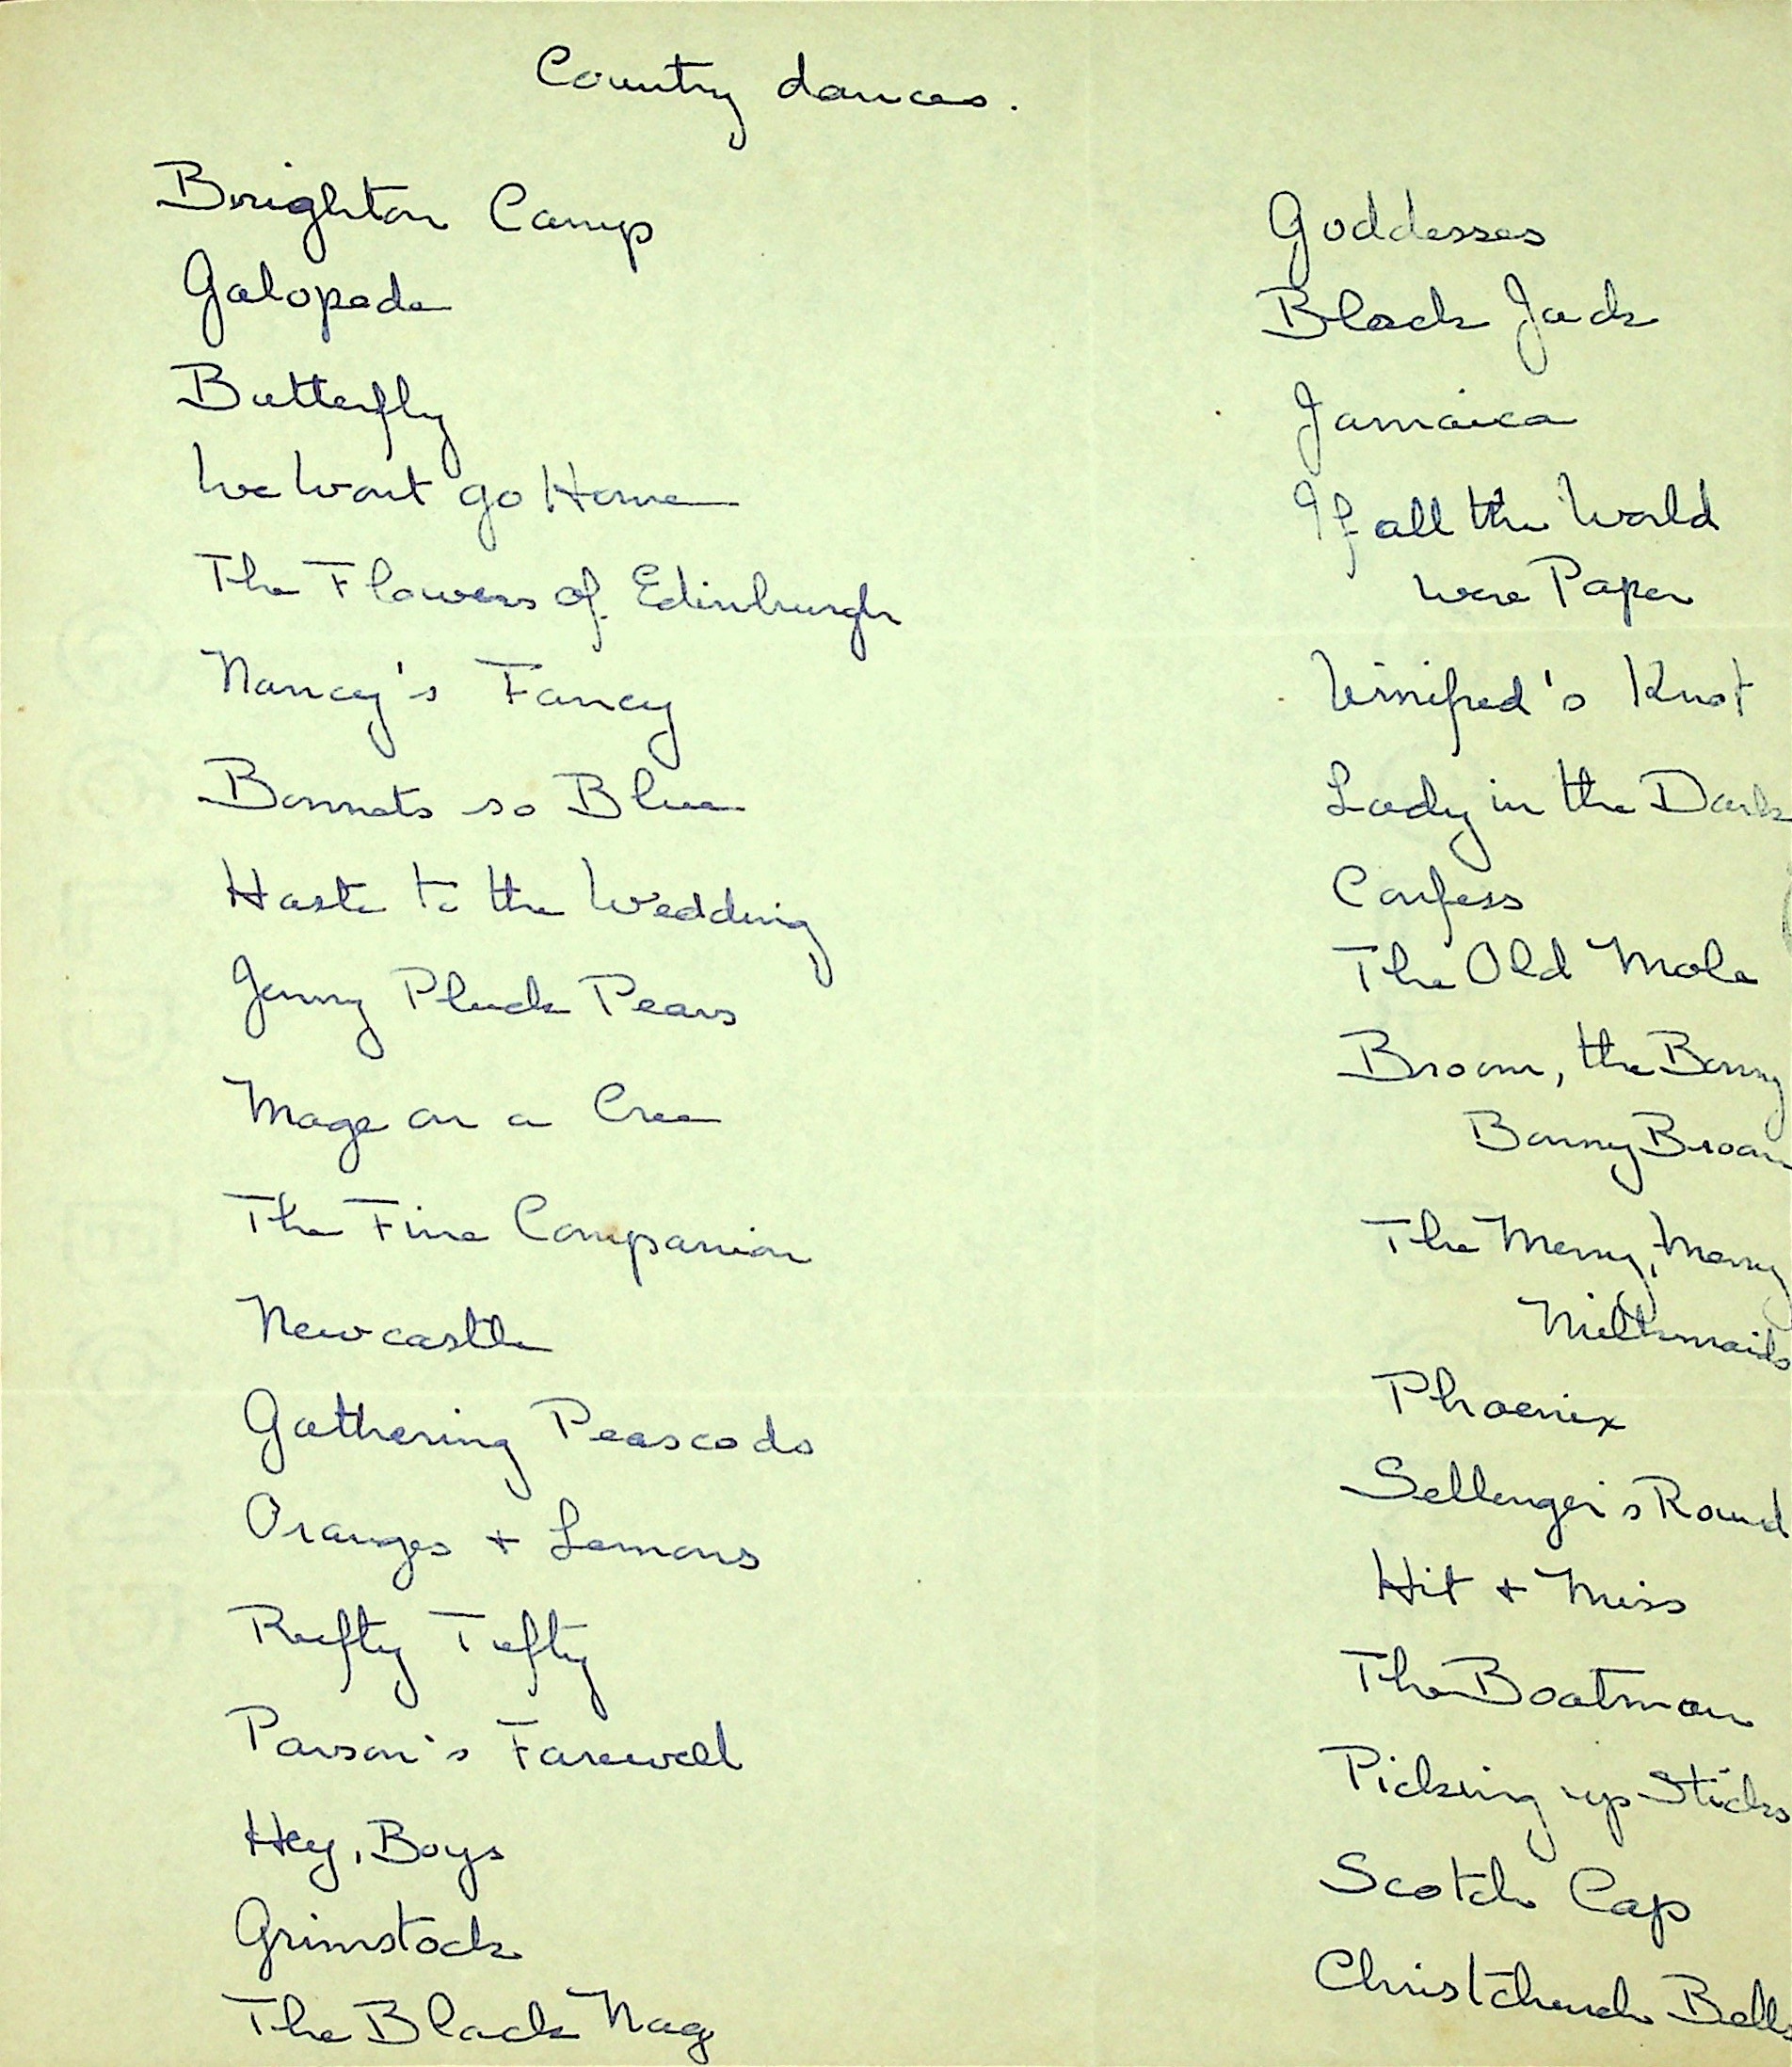 Country dances.
Brighton Camp
Galopede
Butterfly
We Wont go Home
The Flowers of Edinburgh
Nancy's Fancy
Bonnets so Blue
Haste to the Wedding
Jenny Pluck Pears
Mage on a Cree
The Fine Companion
Newcastle
Gathering Peascods
Oranges + Lemons
Rufty Tufty
Parson's Farewell
Hey, Boys
Grimstock
The Black Nag
Goddesses
Black Jack
Jamaica
If all the World
were Paper
Winifred's Knot
Lady in the Dark
Confess
The Old Mole
Broom, the Bonny
Bonny Broom
The Merry, Merry
Milkmaids
Phoenix
Sellenger's Round
Hit + Miss
The Boatman
Picking up Sticks
Scotch Cap
Christchurch Bells